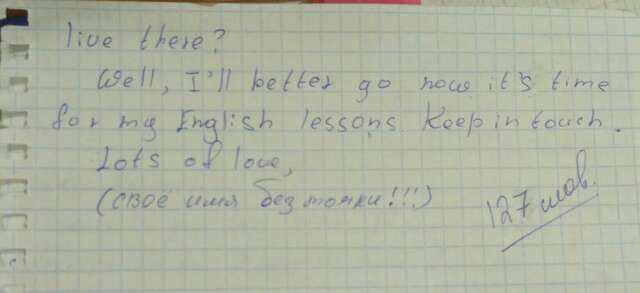 live there?
Well, I'll better go now it's time
for my English lessons Keep in touch.
Lots of love,
(своё имя без точки!!!)
127 слов.